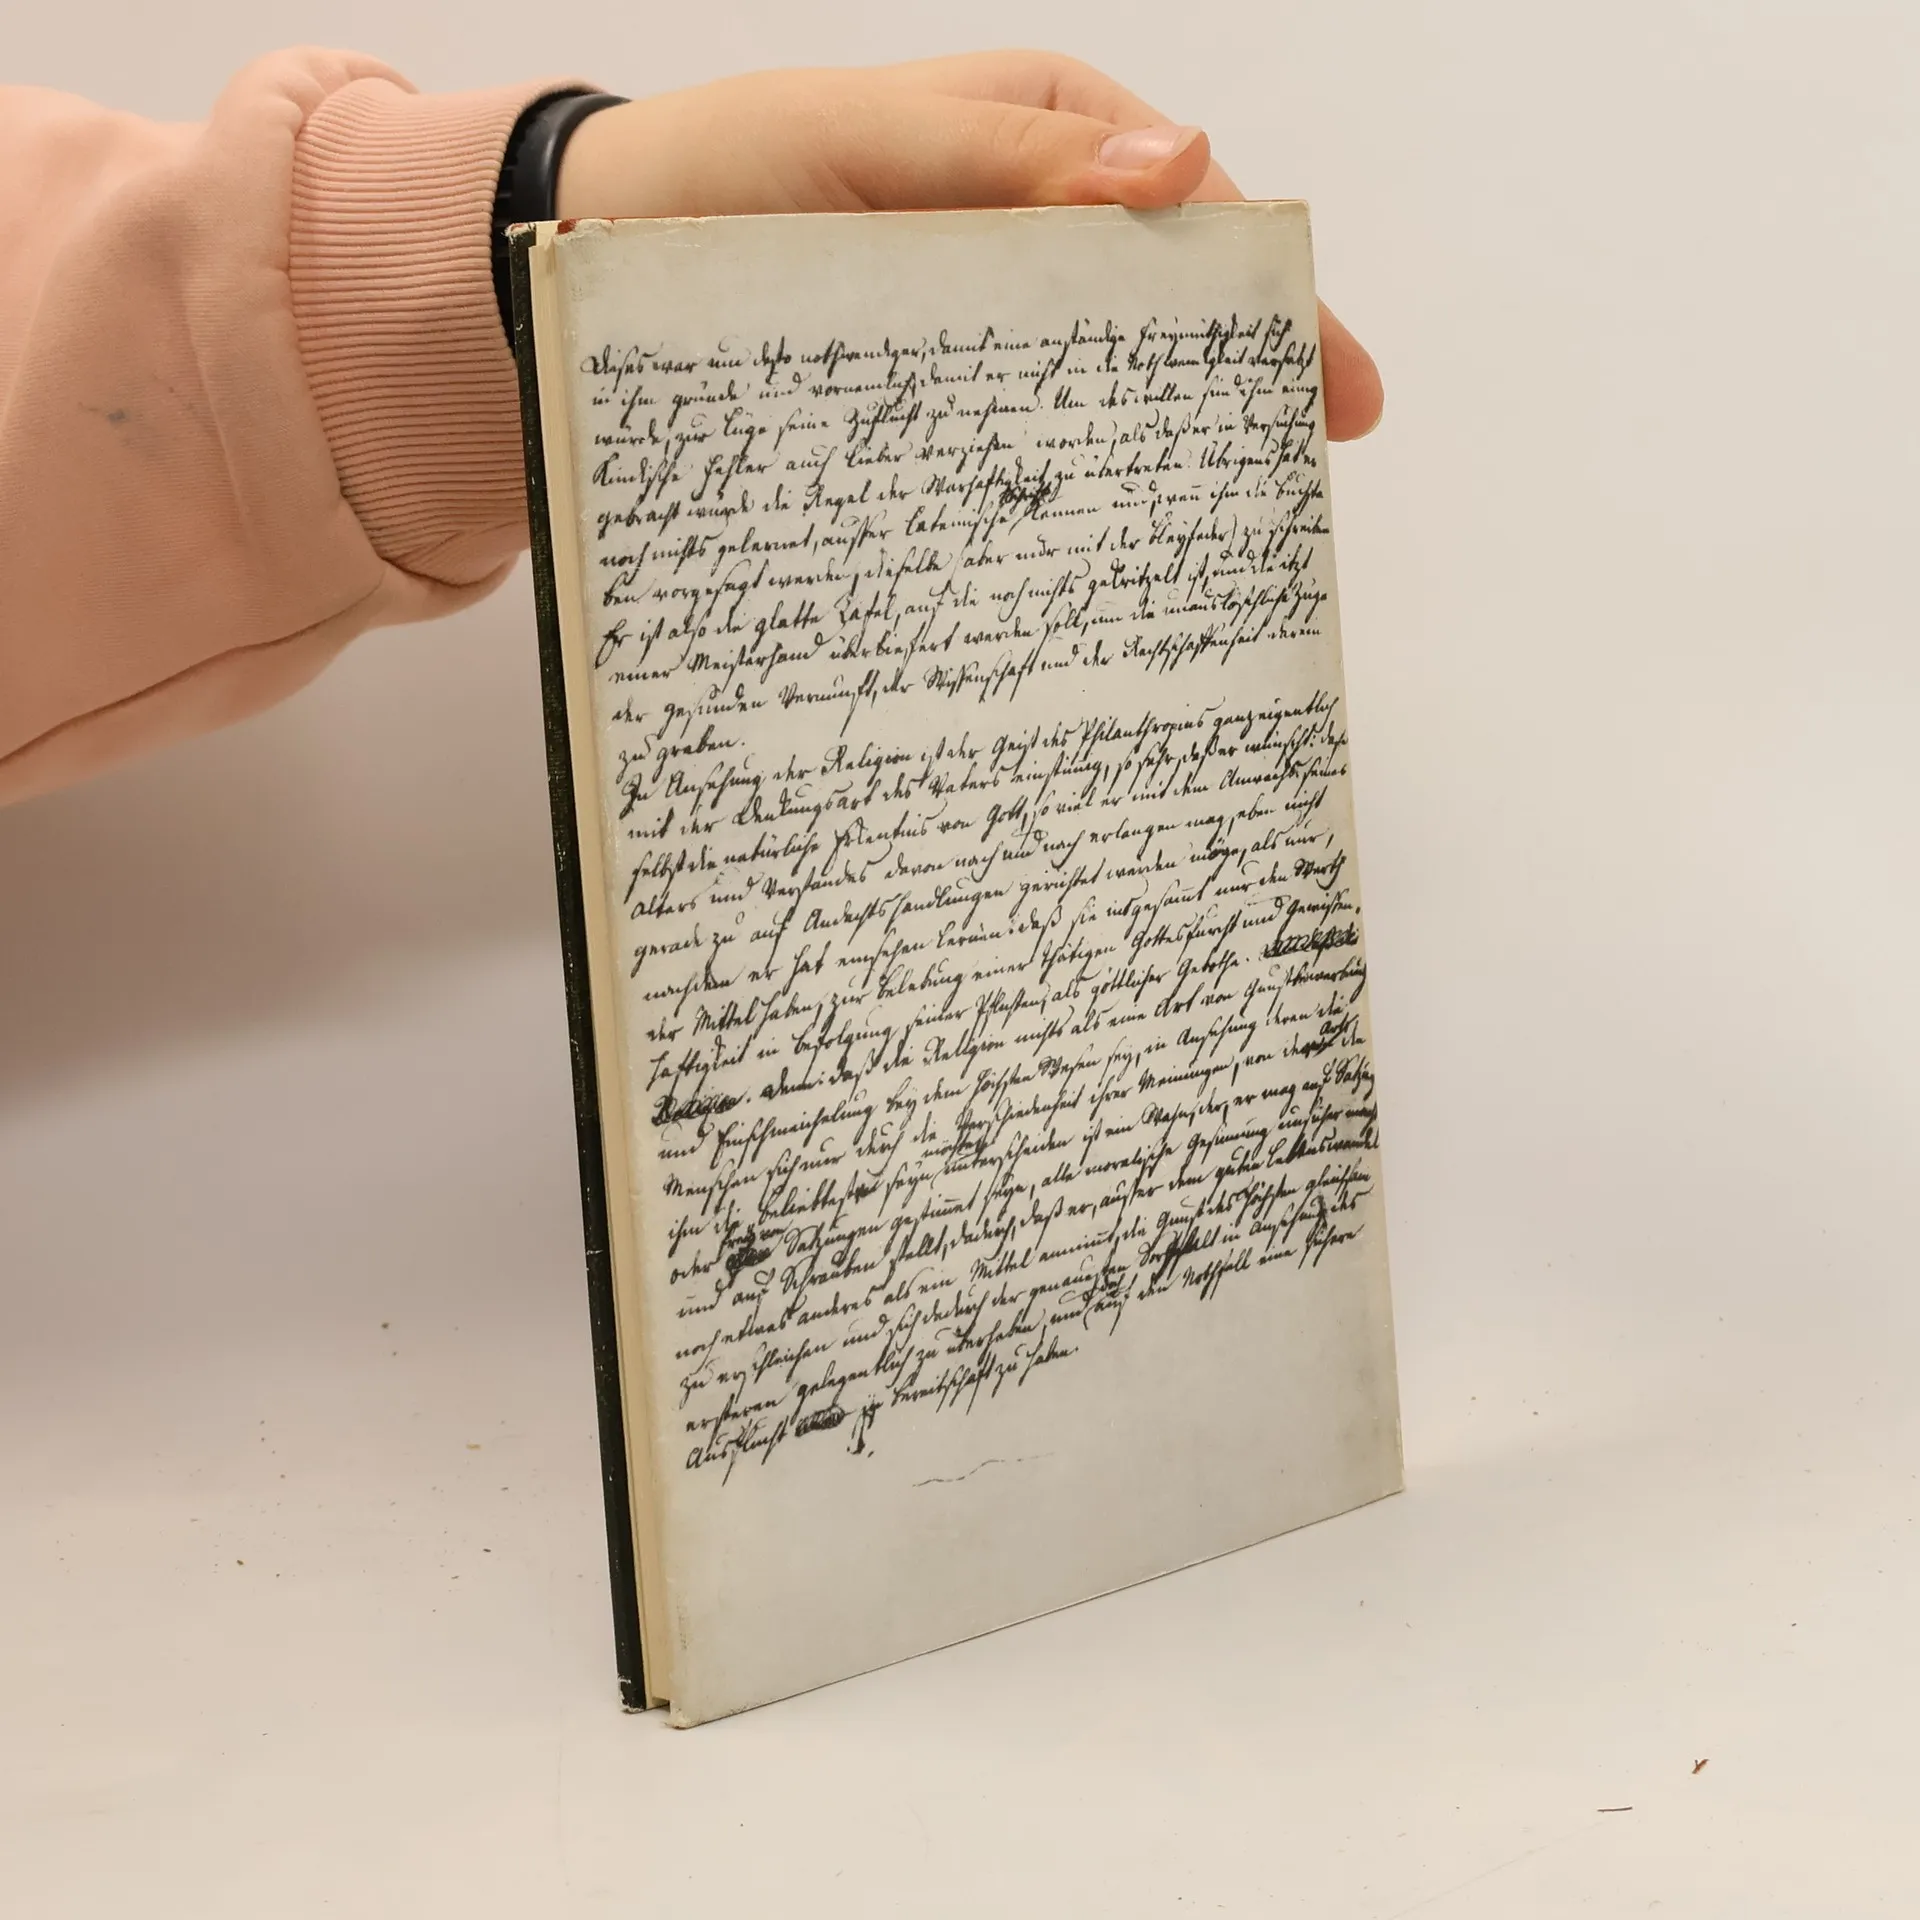 Dieses war um desto nothwendiger, damit eine anständige Freymüthigkeit sich
in ihm gründe und vornemlich, damit er nicht in die Nothwendigkeit versetzt
würde, zur Lüge seine Zuflucht zu nehmen. Um deswillen sind ihm einige
Kindische Fehler auch lieber verziehen worden, als daß er in Versuchung
gebracht würde die Regel der Warhaftigkeit zu übertreten. Übrigens hat er
noch nichts gelernet, ausser lateinische Schrift kennen und, wenn ihm die Buchsta
ben vorgesagt werden, dieselbe (aber nur mit der Bleyfeder) zu schreiben
Er ist also die glatte Tafel, auf die noch nichts gekritzelt ist, und die itzt
einer Meisterhand überliefert werden soll, um die unauslöschliche Züge
der gesunden Vernunft, der Wissenschaft und der Rechtschaffenheit darein
zu graben.
In Ansehung der Religion ist der Geist des Philanthropins ganz eigentlich
mit der Denkungsart des Vaters einstimig, so sehr, daß er wünscht: daß
selbst die natürliche Erkentnis von Gott, so viel er mit dem Anwachs seines
Alters und Verstandes davon nach und nach erlangen mag, eben nicht
gerade zu auf Andachtshandlungen gerichtet werden möge, als nur,
nachdem er hat einsehen lernen: daß sie insgesamt nur den Werth
der Mittel haben, zur Belebung einer thätigen Gottesfurcht und Gewissen-
haftigkeit in Befolgung seiner Pflichten, als göttlicher Gebothe.
Denn: daß die Religion nichts als eine Art von Gunstbewerbung
und Einschmeichelung bey dem höchsten Wesen sey, in Ansehung deren die
Menschen sich nur durch die Verschiedenheit ihrer Meinungen, von der Art die
ihm die beliebteste seyn möchte unterscheiden ist ein Wahn, der, er mag auf Satzung
oder frey von Satzungen gestimmt seyn, alle moralische Gesinnung unsicher macht
und auf Schrauben stellt, dadurch, daß er, ausser dem guten Lebenswandel
noch etwas anderes als ein Mittel annimmt, die Gunst des Höchsten gleichsam
zu erschleichen und sich dadurch der genauesten Sorgfalt in Ansehung des
ersteren gelegentlich zu überheben, und doch auf den Nothfall eine sichere
Ausflucht in Bereitschaft zu haben.